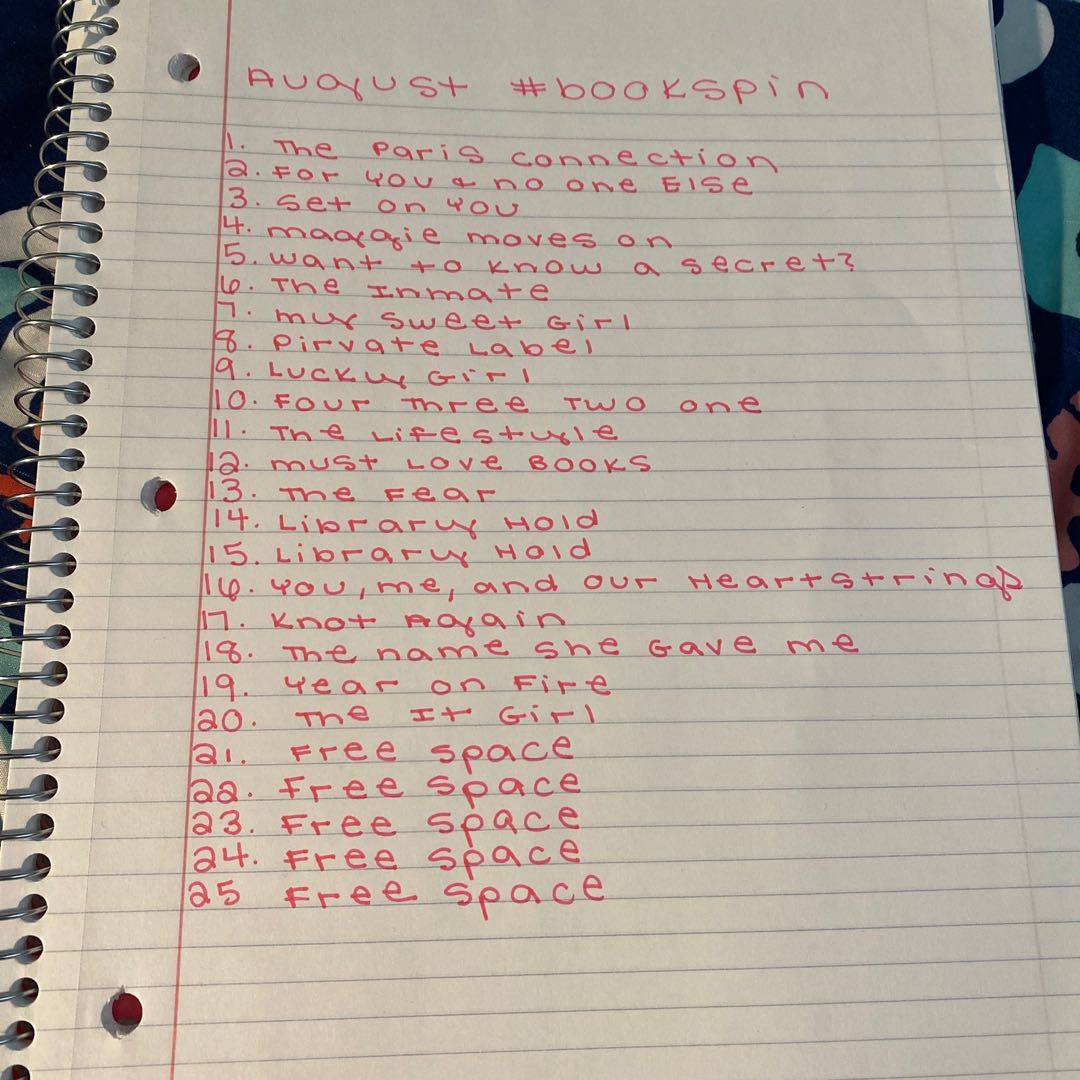 August #bookspin
1. The Paris Connection
2. For you & no one Else
3. Set on you
4. maggie moves on
5. Want to know a secret?
6. The Inmate
7. my Sweet Girl
8. Pirvate Label
9. Lucky Girl
10. Four Three Two one
11. The Lifestyle
12. must Love Books
13. The Fear
14. Library Hold
15. Library Hold
16. you, me, and our Heartstrings
17. Knot Again
18. The name She Gave me
19. Year on Fire
20. The It Girl
21. Free Space
22. Free Space
23. Free Space
24. Free Space
25 Free Space